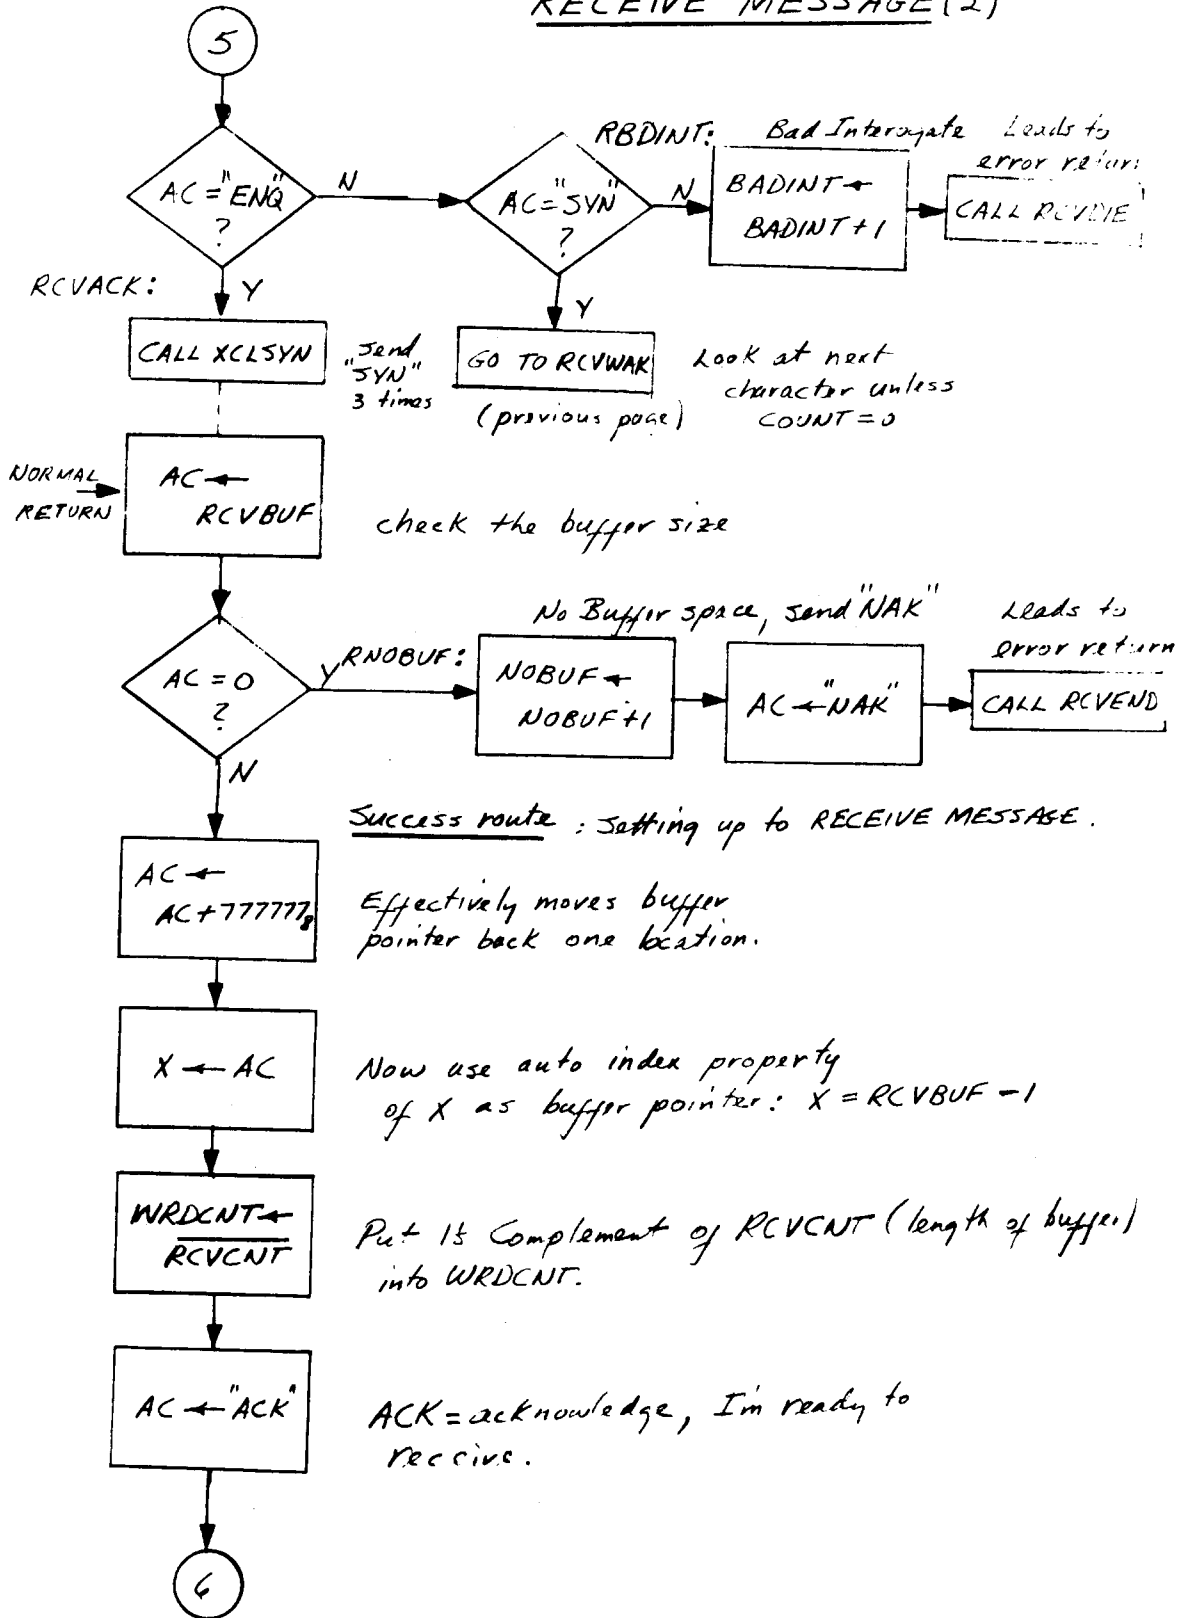 RECEIVE MESSAGE (2)
5
AC="ENQ"
?
N
AC="SYN"
?
N
RBDINT:
Bad Interogate
Leads to
error return
BADINT←
BADINT+1
CALL RCVDIE
RCVACK:
Y
Y
CALL XCLSYN
"Send
"SYN"
3 times
GO TO RCVWAK
(previous page)
Look at next
character unless
COUNT=0
NORMAL
RETURN
AC←
RCVBUF
check the buffer size
AC=0
?
Y
RNOBUF:
No Buffer space, send "NAK"
Leads to
error return
NOBUF←
NOBUF+1
AC←"NAK"
CALL RCVEND
N
Success route : Setting up to RECEIVE MESSAGE.
AC←
AC+777777₈
Effectively moves buffer
pointer back one location.
X←AC
Now use auto index property
of X as buffer pointer: X=RCVBUF-1
WRDCNT←
RCVCNT
Put 1's Complement of RCVCNT (length of buffer)
into WRDCNT.
AC←"ACK"
ACK=acknowledge, I'm ready to
receive.
6